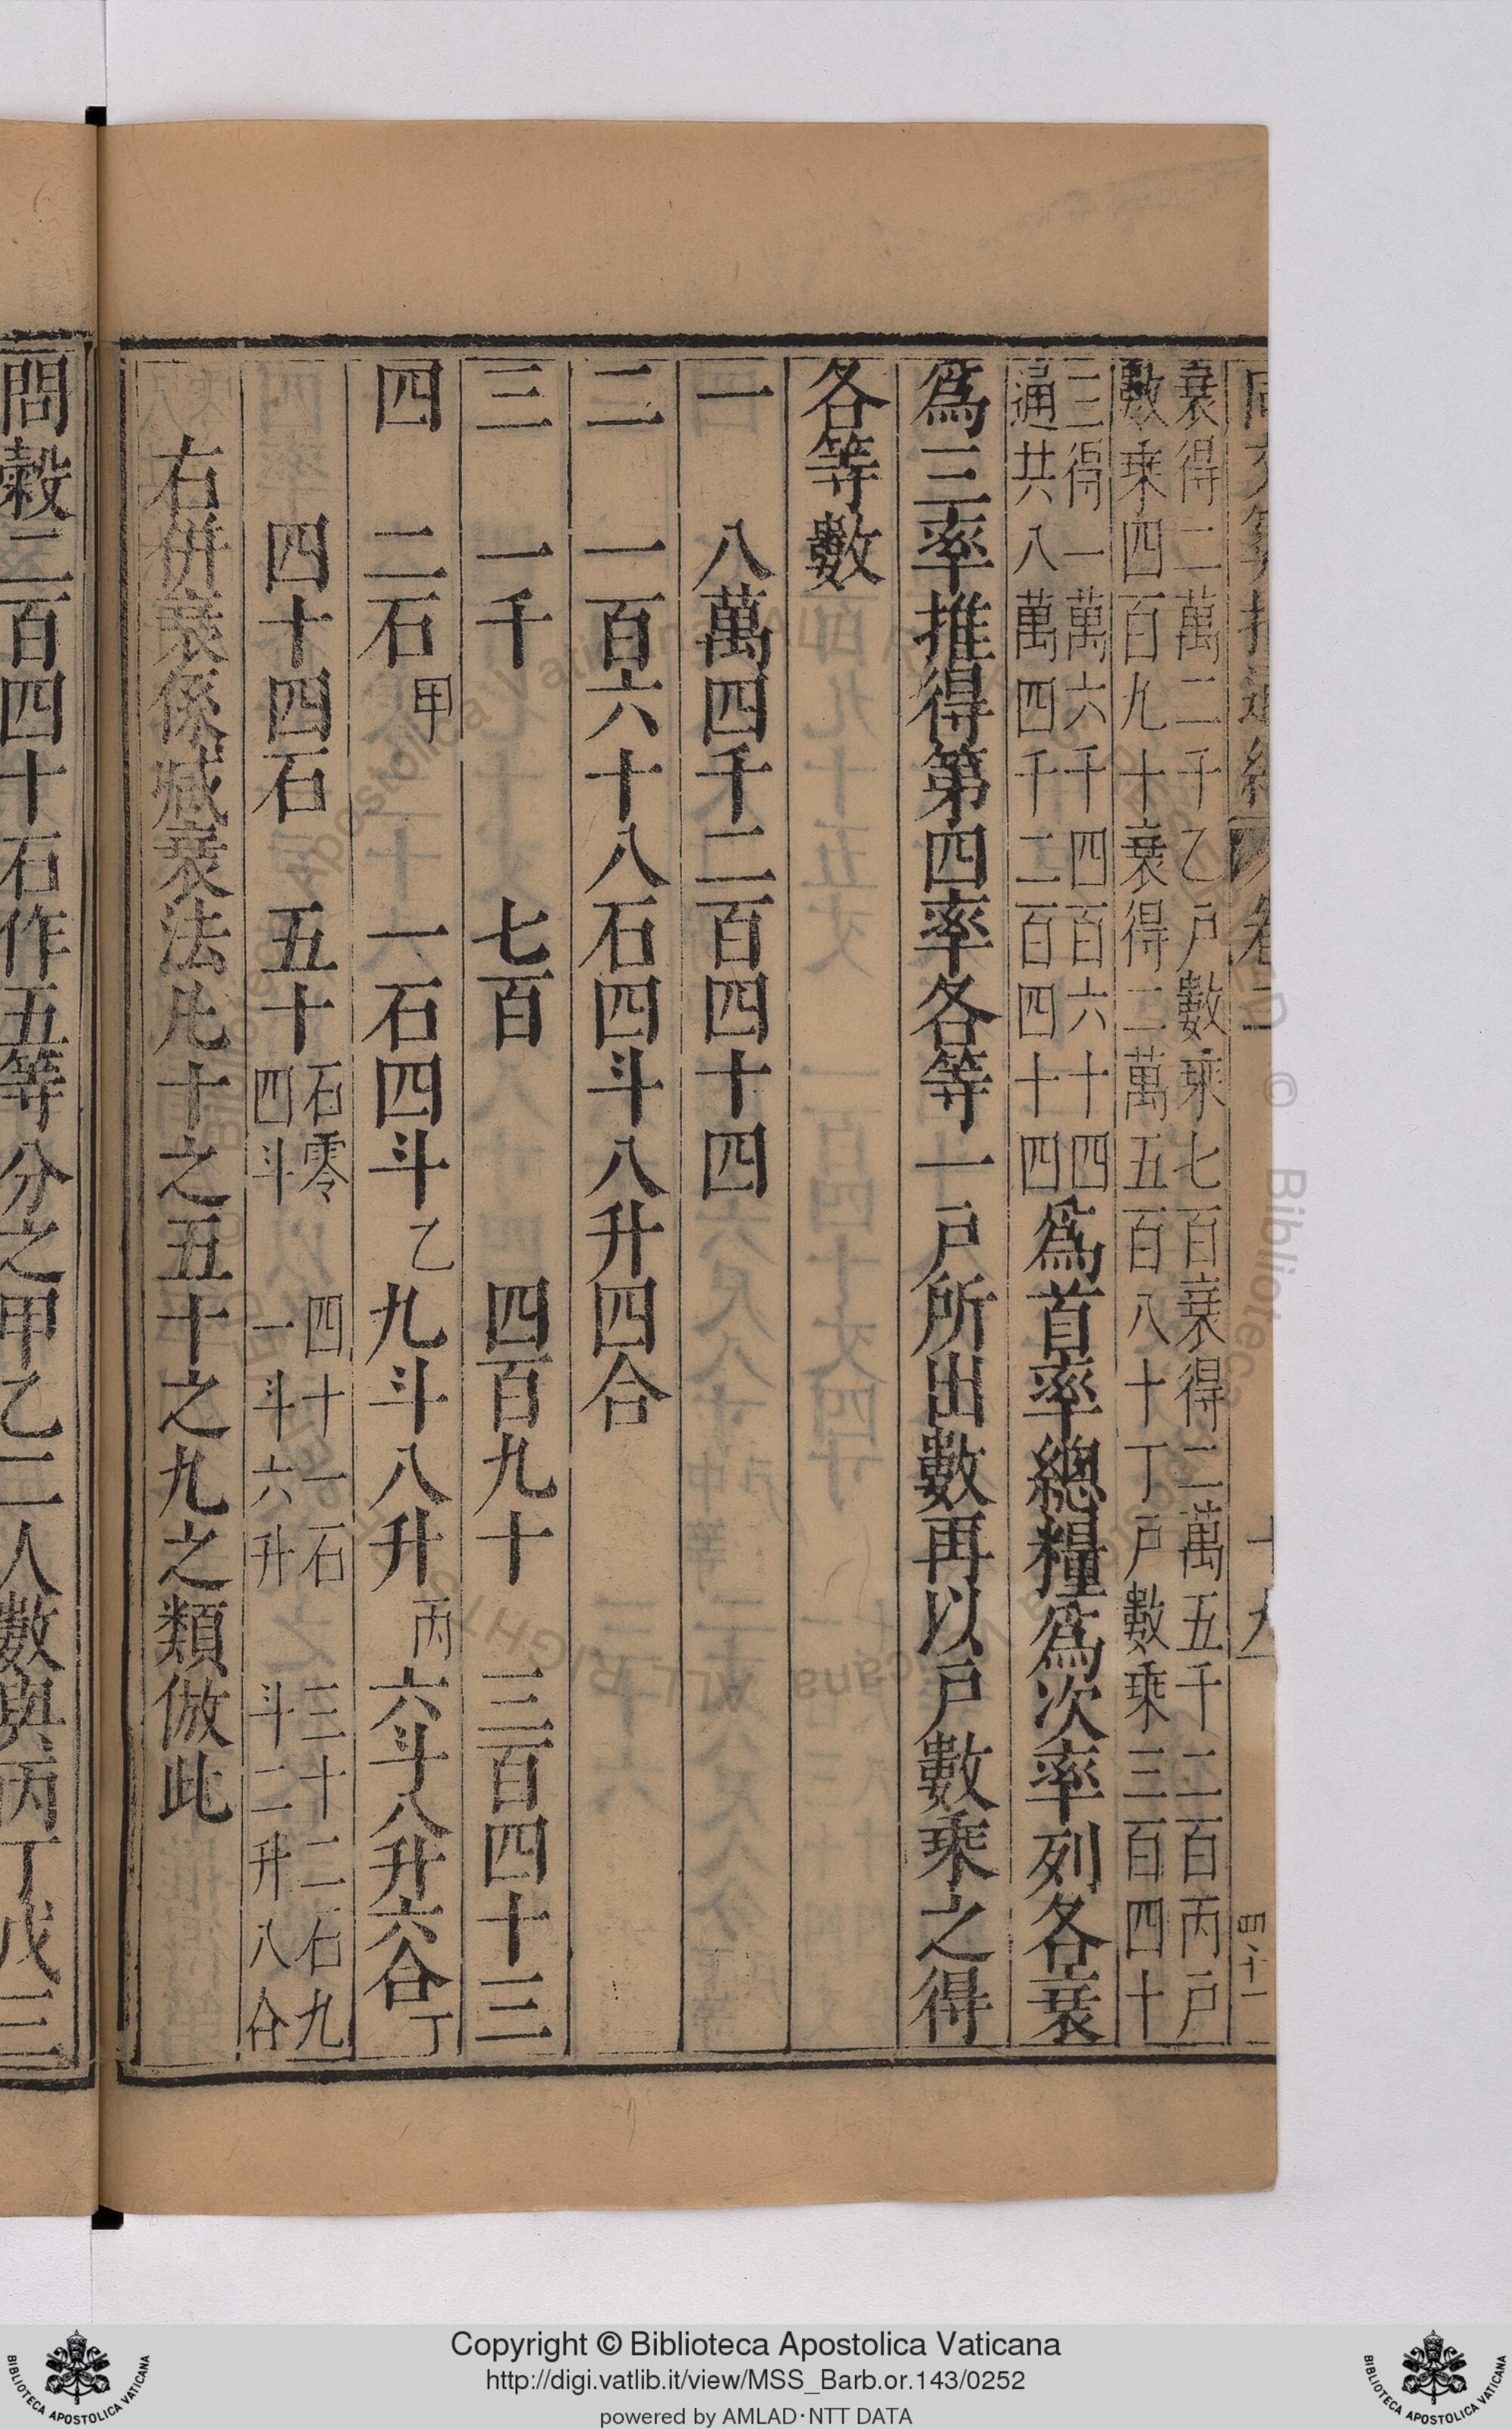 衰得二萬二千乙户數乘七百衰得二萬五千二百丙户
數乘四百九十衰得二萬五百八十丁户數乘三百四十
三得一萬六千四百六十四
通共八萬四千二百四十四
爲首率總糧爲次率列各衰
爲三率推得第四率各等一户所出數再以户數乘之得
各等數
一 八萬四千二百四十四
二 一百六十八石四斗八升四合
三 一千 七百 四百九十 三百四十三
四 二石甲 一石四斗乙 九斗八升丙 六斗八升六合丁
四十四石 五十石零四斗 四十一石一斗六升 三十二石九斗二升八合
右併衰係減衰法凡十之五十之九之類倣此
問穀二百四十石作五等分之甲乙二人數與丙丁戊三
Copyright © Biblioteca Apostolica Vaticana
http://digi.vatlib.it/view/MSS_Barb.or.143/0252
powered by AMLAD·NTT DATA
BIBLIOTECA APOSTOLICA VATICANA
BIBLIOTECA APOSTOLICA VATICANA